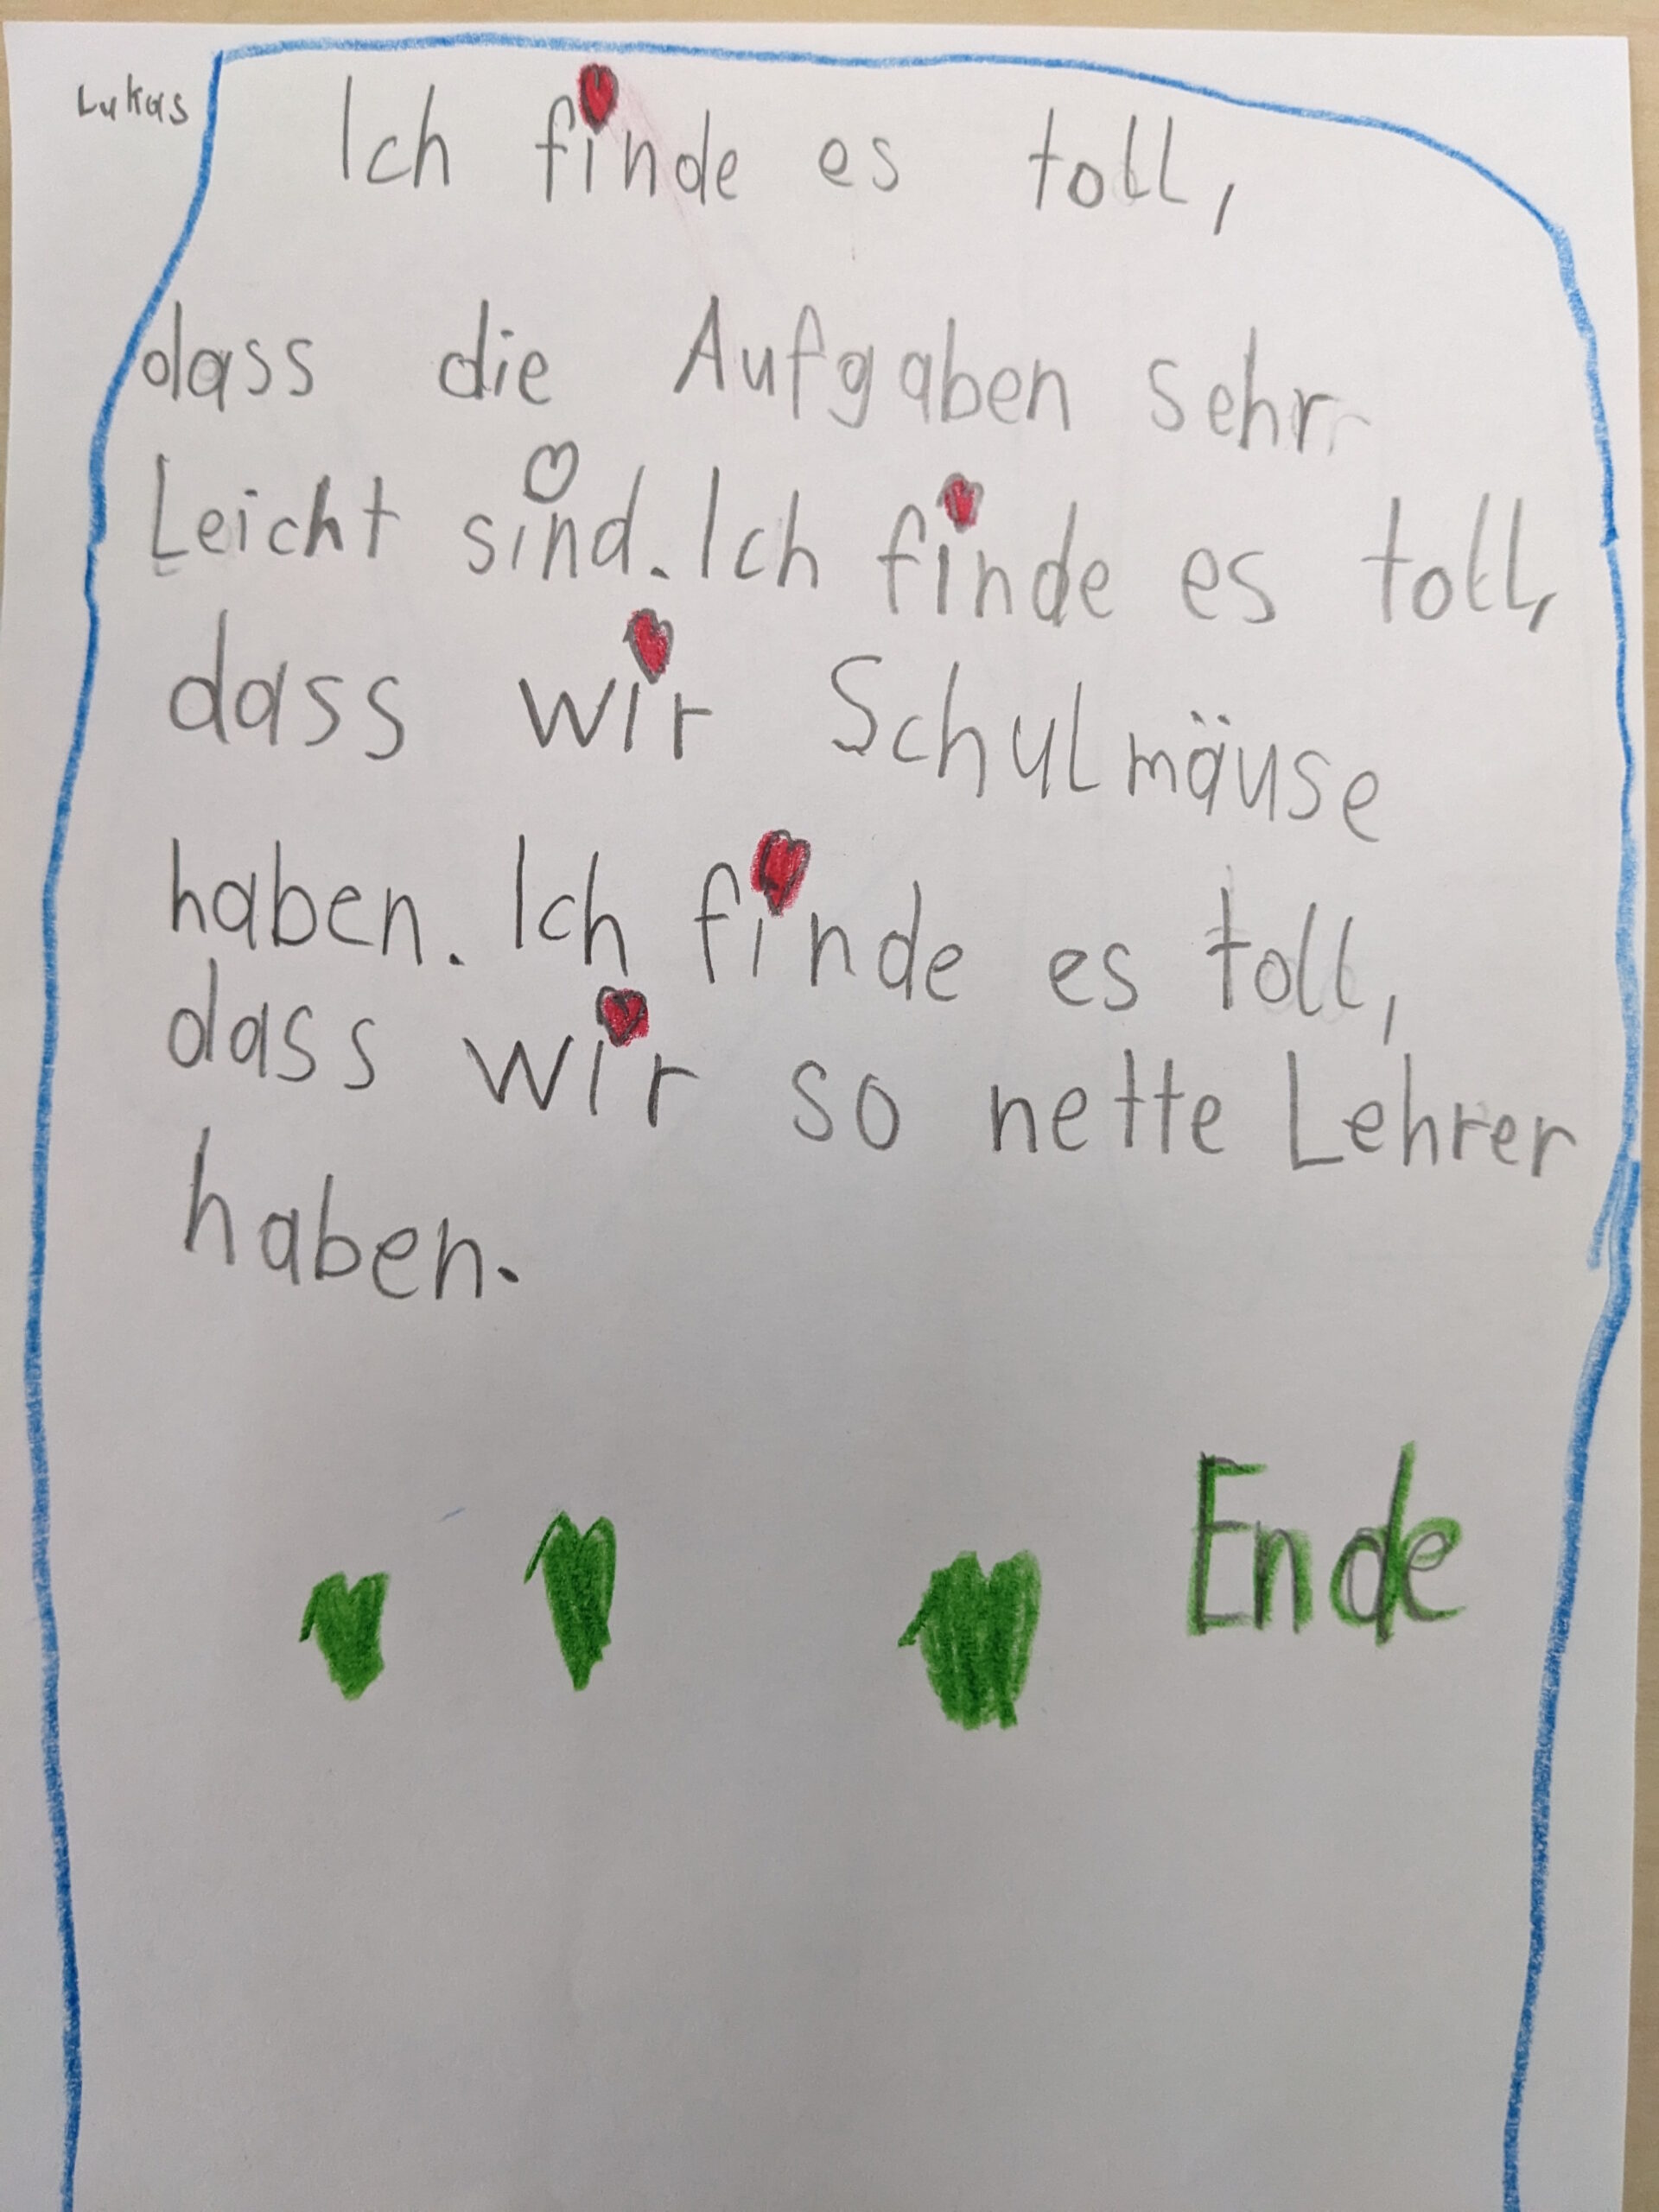 Lukas
Ich finde es toll,
dass die Aufgaben sehr
Leicht sind. Ich finde es toll,
dass wir Schulmäuse
haben. Ich finde es toll,
dass wir so nette Lehrer
haben.
Ende